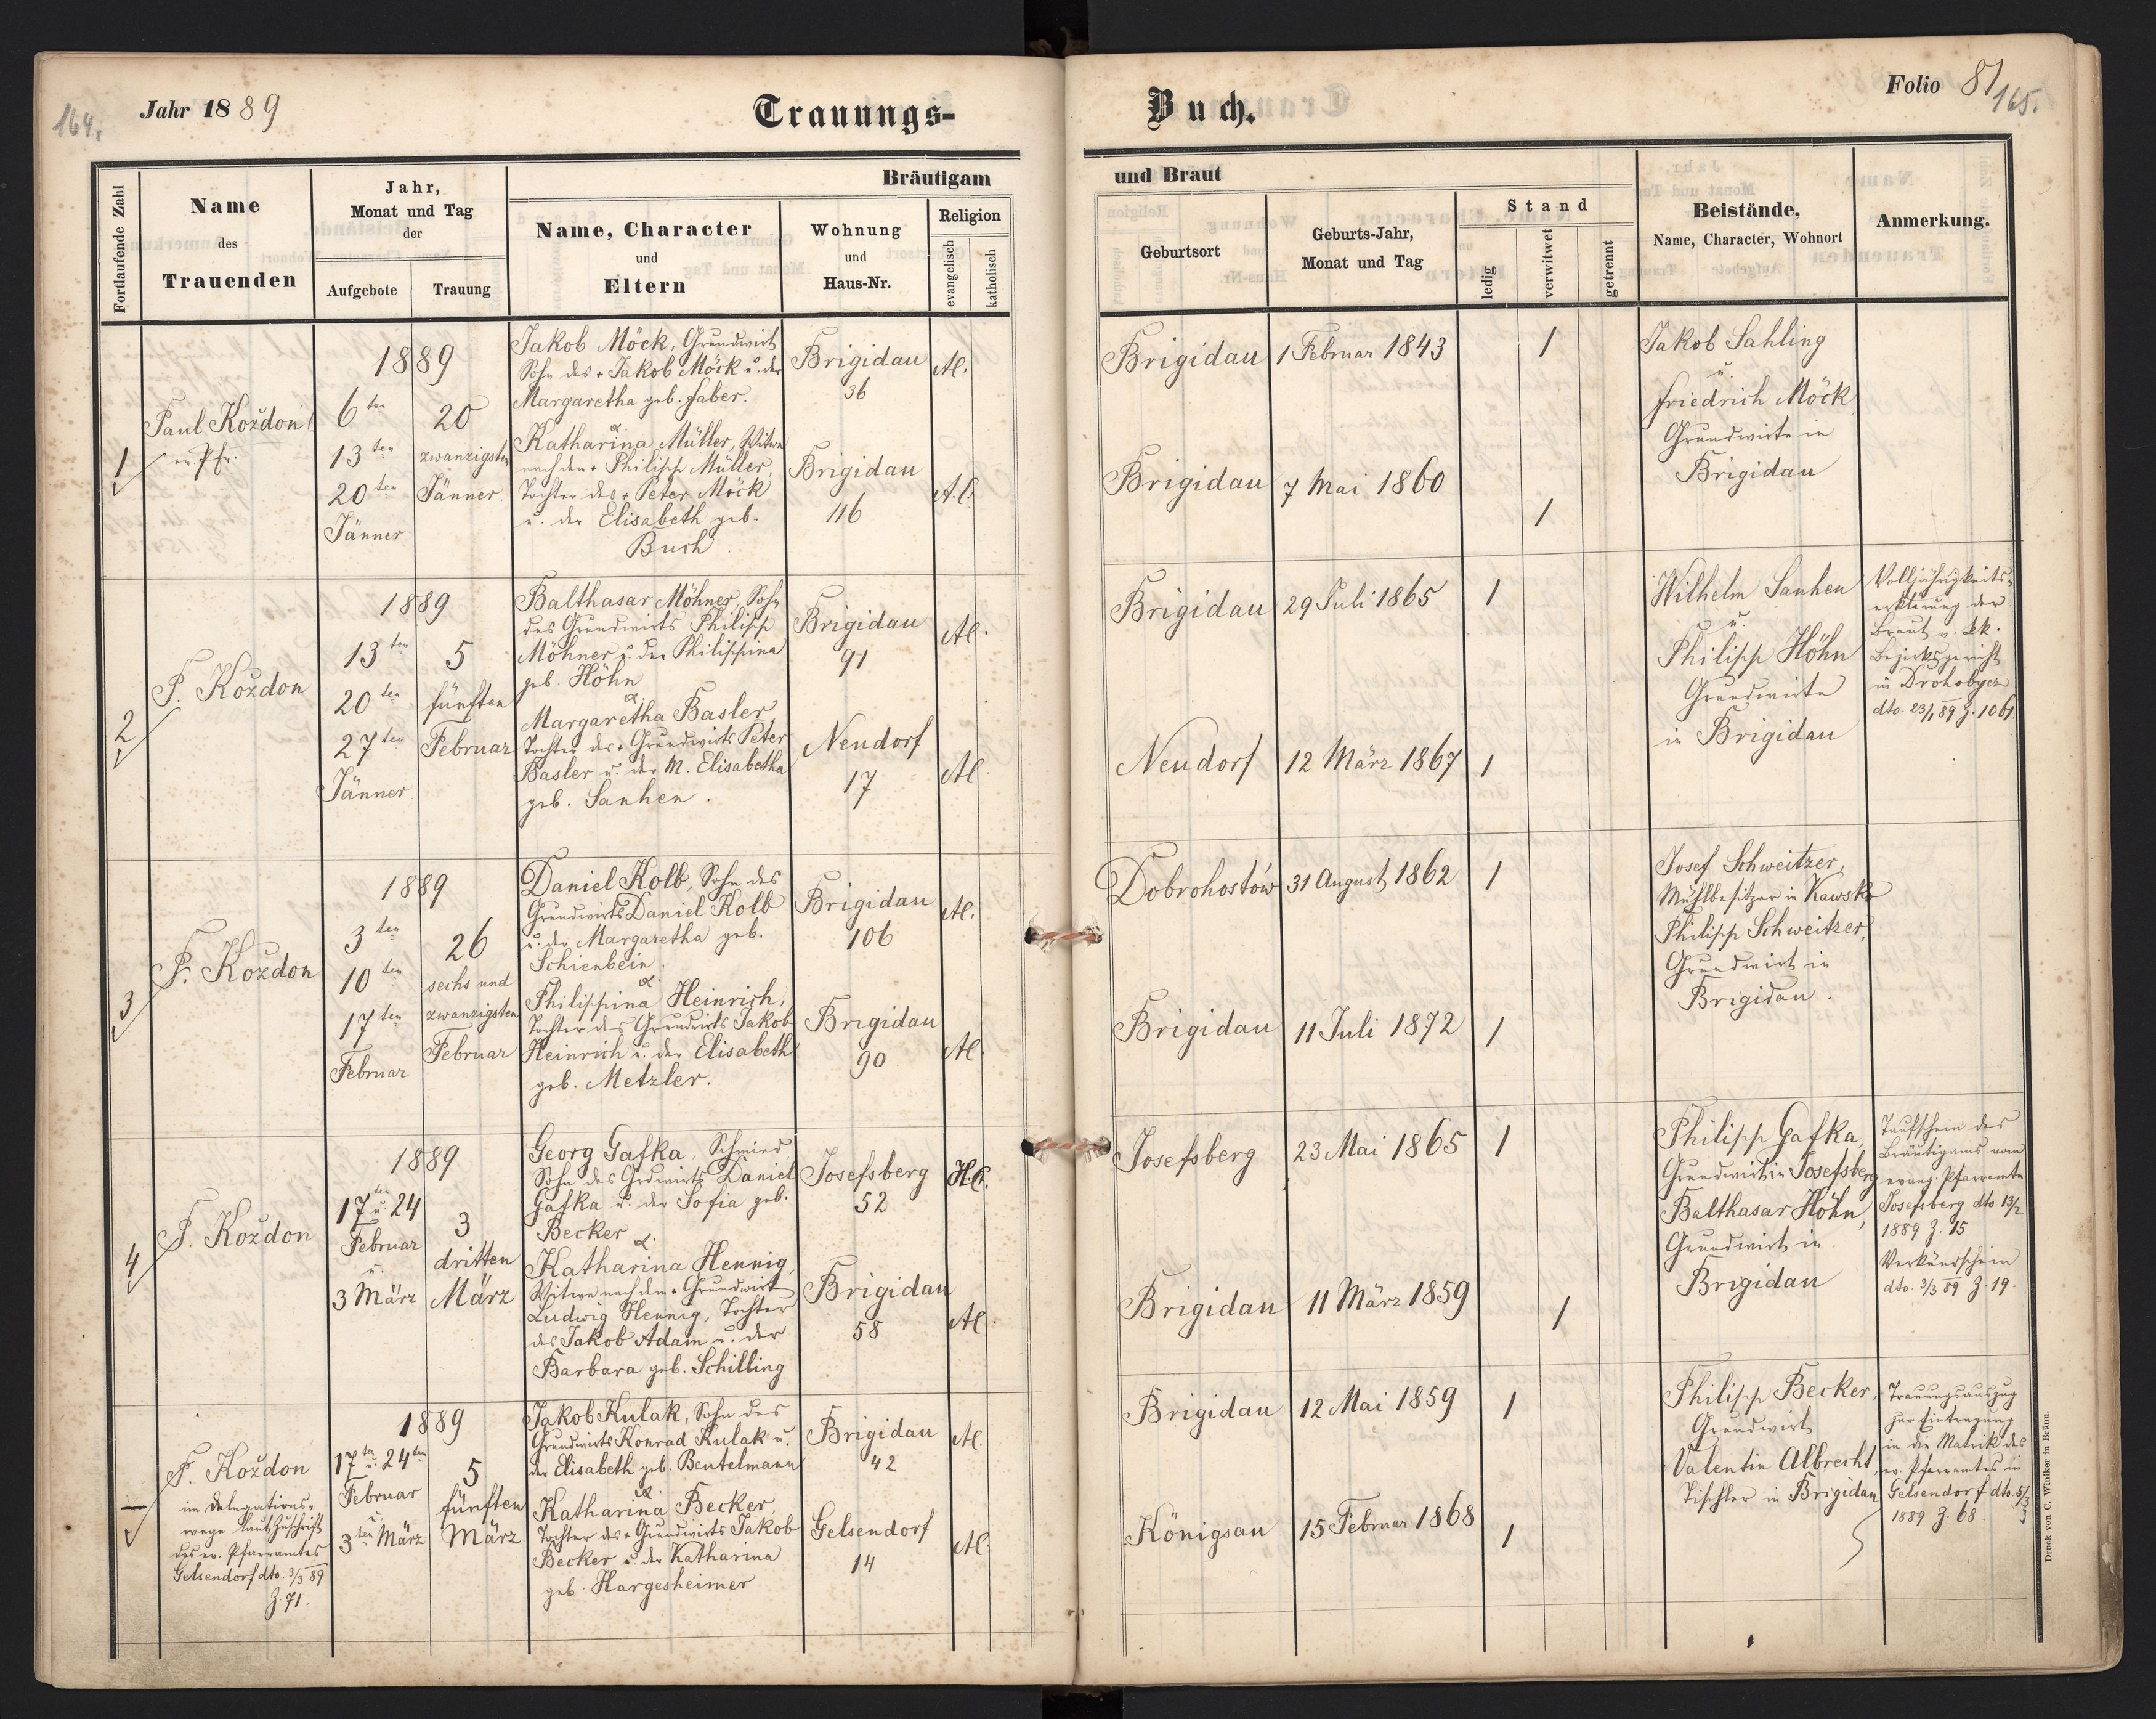 164.
Jahr 1889
Trauungs-
Buch.
Folio 81
165.
Fortlaufende Zahl
Name
des
Trauenden
Jahr,
Monat und Tag
der
Aufgebote
Trauung
Bräutigam
Name, Character
und
Eltern
Wohnung
und
Haus-Nr.
Religion
evangelisch
katholisch
und Braut
Geburtsort
Geburts-Jahr,
Monat und Tag
Stand
ledig
verwitwet
getrennt
Beistände,
Name, Character, Wohnort
Anmerkung.
1
Paul Koždoń
ev. Pfr.
1889
6ten
13ten
20ten
Jänner
20
zwanzigsten
Jänner
Jakob Möck, Grundwirt
Sohn des + Jakob Möck u. der
Margaretha geb. Faber.
&
Katharina Müller, Witwe
nach dem + Philipp Müller,
Tochter des + Peter Möck
u. der Elisabeth geb.
Buch.
Brigidau
36
Brigidau
116
A.C.
A.C.
Brigidau
1 Februar 1843
1
Brigidau
7 Mai 1860
1
Jakob Sahling
u.
Friedrich Möck
Grundwirte in
Brigidau
2
P. Koždon
1889
13ten
20ten
27ten
Jänner
5
fünften
Februar
Balthasar Möhner, Sohn
des Grundwirts Philipp
Möhner u. der Philippina
geb. Höhn
&
Margaretha Basler,
Tochter des + Grundwirts Peter
Basler u. der M. Elisabetha
geb. Sanhen.
Brigidau
91
Neudorf
17
A.C.
A.C.
Brigidau
29 Juli 1865
1
Neudorf
12 März 1867
1
Wilhelm Sanhen
u.
Philipp Höhn
Grundwirte
in Brigidau
Volljährigkeits-
erklärung der
Braut v. k.k.
Bezirksgericht
in Drohobycz
dto. 23/1 89 Z. 1061.
3
P. Koždon
1889
3ten
10ten
17ten
Februar
26
sechs und
zwanzigsten
Februar
Daniel Kolb, Sohn des
Grundwirts Daniel Kolb
u. der Margaretha geb.
Schienbein.
&
Philippina Heinrich,
Tochter des Grundwirts Jakob
Heinrich u. der Elisabeth
geb. Metzler.
Brigidau
106
Brigidau
90
A.C.
A.C.
Dobrohostów
31 August 1862
1
Brigidau
11 Juli 1872
1
Josef Schweitzer,
Mühlbesitzer in Kawsko
Philipp Schweitzer,
Grundwirt in
Brigidau.
4
P. Koždon
1889
17ten u. 24
Februar
u.
3 März
3
dritten
März
Georg Gafka, Schmied,
Sohn des Grdwirts Daniel
Gafka u. der Sofia geb.
Becker
&
Katharina Hennig,
Witwe nach dem + Grundwirt
Ludwig Hennig, Tochter
des Jakob Adam u. der
Barbara geb. Schilling
Josefsberg
52
Brigidau
58
H.C.
A.C.
Josefsberg
23 Mai 1865
1
Brigidau
11 März 1859
1
Philipp Gafka,
Grundwirt in Josefsberg
Balthasar Höhn,
Grundwirt in
Brigidau
Taufschein des
Bräutigams vom
evang. Pfarramte
Josefsberg dto 13/2
1889 Z. 15
Verkündschein
dto. 3/3 89 Z. 19.
P. Koždon
im Delegations-
wege laut Zuschrift
des ev. Pfarramtes
Gelsendorf dto. 3/3 89
Z. 71.
1889
17ten u. 24ten
Februar
u.
3ten März
5
fünften
März
Jakob Kulak, Sohn des
Grundwirts Konrad Kulak u.
der Elisabeth geb. Beutelmann
&
Katharina Becker,
Tochter des + Grundwirts Jakob
Becker u. der Katharina
geb. Hargesheimer
Brigidau
42
Gelsendorf
14
A.C.
A.C.
Brigidau
12 Mai 1859
1
Königsau
15 Februar 1868
1
Philipp Becker,
Grundwirt
Valentin Albrecht,
Tischler in Brigidau
Trauungsauszug
zur Eintragung
in die Matrik des
ev. Pfarramtes in
Gelsendorf dto. 5/3
1889 Z. 68
Druck von C. Winiker in Brünn.